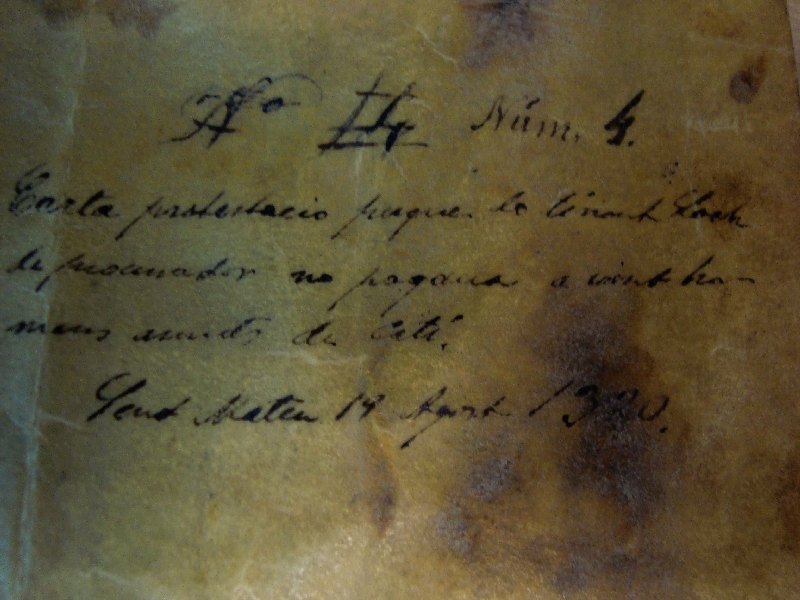 Nº 14 Núm. 4.
Carta protestacio perque lo tinent Loch
de procurador no pagaua a vint ho-
mens armats de Cati.
Sent Mateu 19 Agost 1320.